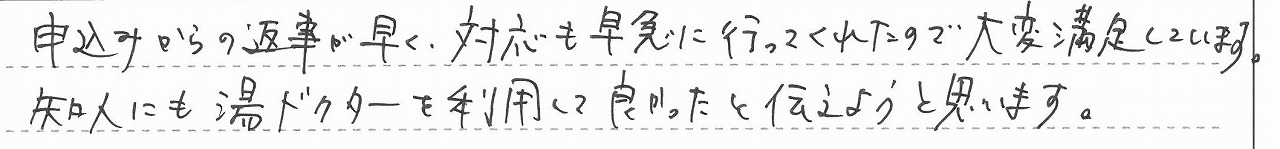 申込みからの返事が早く、対応も早急に行ってくれたので大変満足しています。
知人にも湯ドクターを利用して良かったと伝えようと思います。